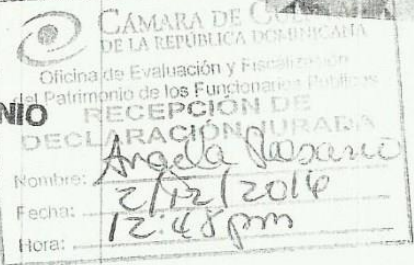 CÁMARA DE CUE
DE LA REPÚBLICA DOMINICANA
Oficina de Evaluación y Fiscalización
del Patrimonio de los Funcionarios Públicos
NIO
RECEPCIÓN DE
DECLARACIÓN JURADA
Nombre: Angela Rosario
Fecha: 2/12/2016
Hora: 12:48 pm